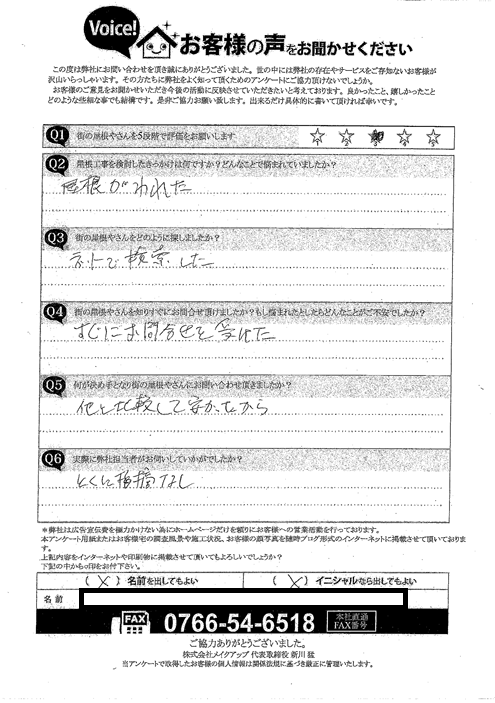 Voice!
お客様の声をお聞かせください
この度は弊社にお問い合わせを頂き誠にありがとうございました。世の中には弊社の存在やサービスをご存知ないお客様が
沢山いらっしゃいます。その方たちに弊社をよく知って頂くためのアンケートにご協力頂けないでしょうか。
お客様のご意見をお聞かせいただき今後の活動に反映させていただきたいと考えております。良かったこと、嬉しかったこと
どのような些細な事でも結構です。是非ご協力お願い致します。出来るだけ具体的に書いて頂ければ幸いです。
Q1 街の屋根やさんを5段階で評価をお願いします
Q2 屋根工事を検討したきっかけは何ですか?どんなことで悩まれていましたか?
屋根がわれた
Q3 街の屋根やさんをどのように探しましたか?
ネットで検索した
Q4 街の屋根やさんを知りすぐにお問合せ頂けましたか?もし悩まれたとしたらどんなことがご不安でしたか?
すぐにお問合せを受けた
Q5 何が決め手となり街の屋根やさんにお問い合わせ頂きましたか?
他と比較して安かったから
Q6 実際に弊社担当者がお伺いしていかがでしたか?
とくに指摘なし
*弊社は広告宣伝費を極力かけない為にホームページだけを頼りにお客様への営業活動を行っております。
本アンケート用紙またはお客様宅の調査風景や施工状況、お客様の顔写真を随時ブログ形式のインターネットに掲載させて頂いておりま
す。
上記内容をインターネットや印刷物に掲載させて頂いてもよろしいでしょうか?
下記の中から○印をお付下さい。
( × ) 名前を出してもよい ( × ) イニシャルなら出してもよい
名前
FAX 0766-54-6518 本社直通
FAX番号
ご協力ありがとうございました。
株式会社メイクアップ 代表取締役 新川 猛
当アンケートで取得したお客様の個人情報は関係法規に基づき厳正に管理いたします。